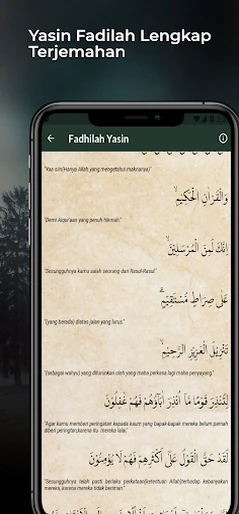 Yasin Fadilah Lengkap
Terjemahan
Fadhilah Yasin
"Yaa siin(Hanya Allah yang mengetahui maknanya)"
وَالْقُرْاٰنِ الْحَكِيْمِۙ
"Demi Alqur'aan yang penuh hikmah."
اِنَّكَ لَمِنَ الْمُرْسَلِيْنَۙ
"Sesungguhnya kamu salah seorang dari Rasul-Rasul"
عَلٰى صِرَاطٍ مُّسْتَقِيْمٍۗ
"(yang berada) diatas jalan yang lurus."
تَنْزِيْلَ الْعَزِيْزِ الرَّحِيْمِۙ
"(sebagai wahyu) yang diturunkan oleh yang maha perkasa lagi maha penyayang."
لِتُنْذِرَ قَوْمًا مَّآ اُنْذِرَ اٰبَاۤؤُهُمْ فَهُمْ غٰفِلُوْنَ
"Agar kamu memberi peringatan kepada kaum yang bapak-bapak mereka belum pernah
diberi peringatan,karena itu mereka lalai."
لَقَدْ حَقَّ الْقَوْلُ عَلٰٓى اَكْثَرِهِمْ فَهُمْ لَا يُؤْمِنُوْنَ
"Sesungguhnya telah pasti berlaku perkataan(ketentuan Allah)terhadap kebanyakan
mereka, karena mereka tidak beriman."